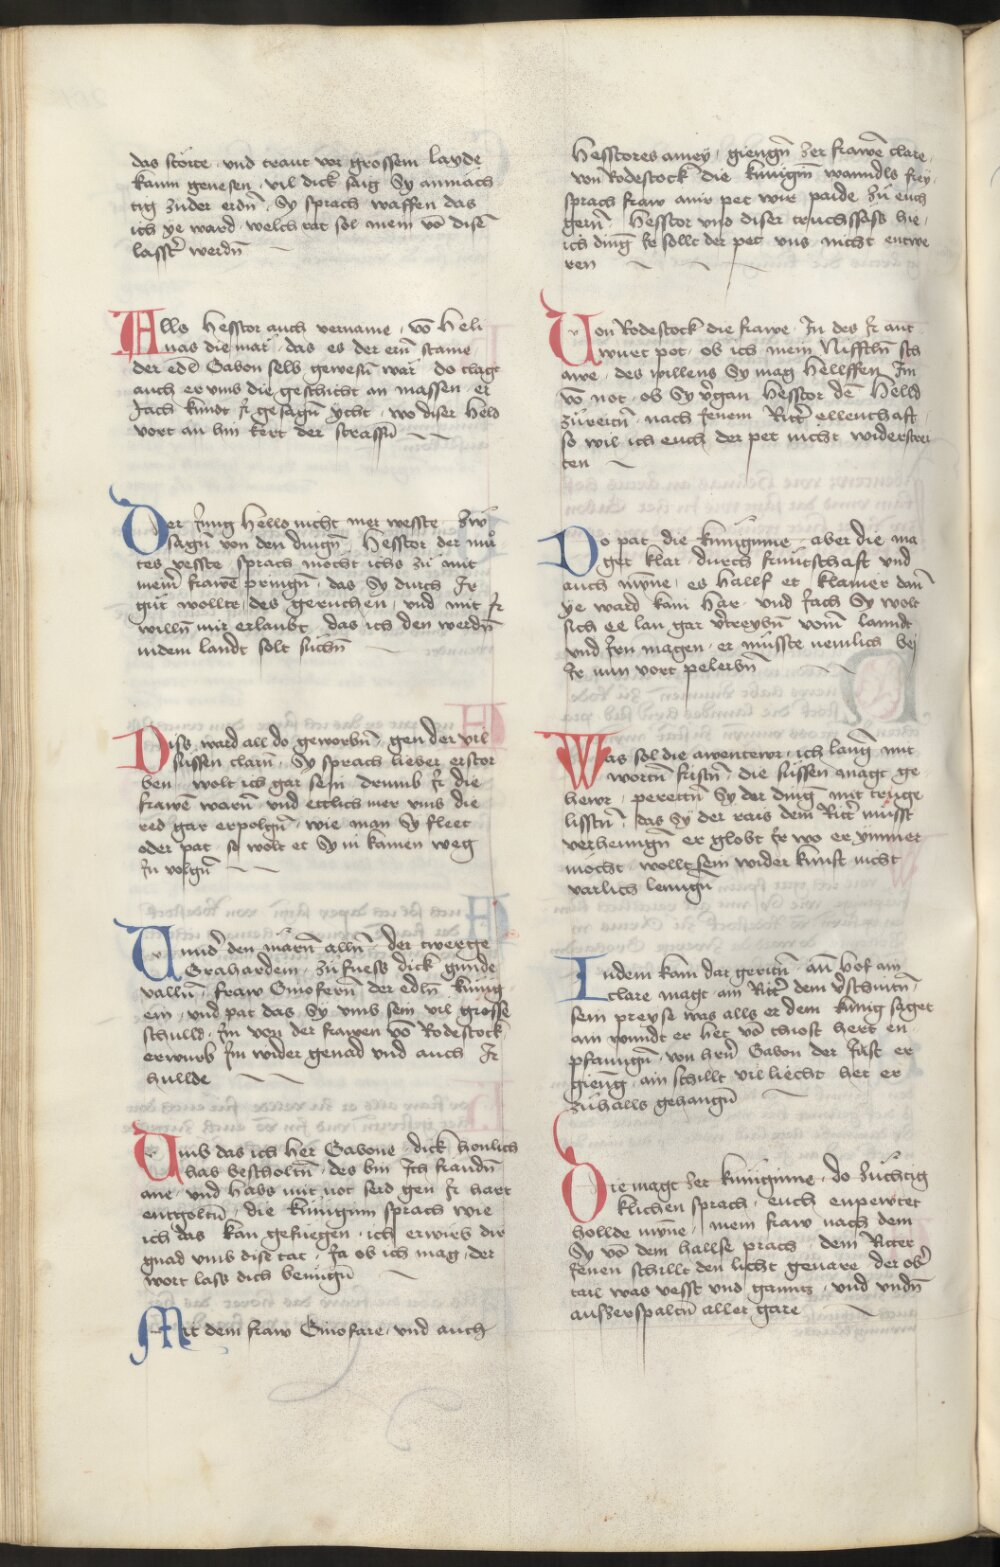 das storte · und traut vor grossem layde
kaum genesen · vil dick saig Sy anmäch
tig zuder erdn̄ · Sy sprach waffen das
ich ye ward · welch rat sol mein vō disē
lasstē werdn̄
Alls Hesstor auch vername · vō Heli
nas die mär · das es der ern̄ stame
der edl Gabon selb gewesn̄ wär · do clagt
auch er umb die geschicht an massen · er
Jach kundt Jr gesagn̄ ycht · wo diser Held
vort an hin kert der strassn̄
Der Jung Helld nicht mer wesste · zw
sagn̄ von den dingn̄ · Hesstor der mů
tes vesste · sprach mocht ichs zů mit
mein̄ frawē pringn̄ · das Sy durch Jr
gůt wollte · des geruchen · und mit Jr
willn̄ mir erlaubt · das ich den werdn̄
indem landt solt sůchn̄
Diss ward all do geworbn̄ · gen der vil
sůssen clarn̄ · Sy sprach lieber erstor
ben · wolt ich gar sein · drumb Jr die
frawē warn̄ · und ettlich mer umb die
red gar erpolgn̄ · wie man Sy fleet
oder pat · so wolt er Sy in kainen weg
Jn volgn̄
Unnd' den märn̄ alln̄ · der twerge
Grahardein · zů fuess dick gunde
valln̄ · fraw Ginofern̄ der edln̄ kunig
ein · und pat das Sy umb sein vil grosse
schulld · Jm von der frawen vō Rodestock
erwurb Jm wider genad und auch Jr
hullde
Umb das ich Her Gabone · dick honlich
has bescholtn̄ · des bin Jch fraudn̄
ane · und habs mit not serd gen Jr hart
entgoltn̄ · die kunigin̄ sprach wie
ich das kan gefuegen · ich erwirb dir
gnad umb dise tat · Ja ob ich mag · der
wort lass dich benugn̄
Mit dem fraw Ginofare · und auch
Hesstores amey · giengn̄ zer frawē clare
von Rodestock die kunigin̄ wanndls frey
sprach fraw mir pet wir paide zů euch
gern̄ · Hesstor und diser truchsäss hie
ich ding Jr sollt der pet uns nicht entwe
ren
Von Rodestock die frawe · Jn des Jr ant
wurt pot · ob ich mein Nifftln̄ sch
awe · des willens Sy mag hellffen Jm
vō not · ob Sy v'gan Hesstor dē Helld
zůreitn̄ · nach Jenem Ritt' ellenthaft
so wil ich euch der pet nicht widerstrei
ten
Do pat die kunigimne · aber die ma
get klar · durch frunntschaft und
auch myn̄e · es hallf et klainer dan̄
ye ward kain har · und Jach Sy wolt
sich ee lan gar v'treybn̄ vom lanndt
und Jrn magen · er můsste nemlich bej
Jr nun vort peleibn̄
Was sol die awentewr · ich lang mit
wortn̄ fristn̄ · die sůssen magt ge
hewr · pereittn̄ Sy der ding mit truge
listn̄ · das Sy der rais dem Ritt' můsst
verhenngn̄ · er globt Jr wo er ymmer
möcht · wollt sein wider kunft nicht
varlich lenngn̄
Indem kam dar geritn̄ · an hof ain
clare magt · ain Ritt' dem v'schnitn̄
sein preys was alls er dem kunig saget
ain wundt er het vō thiost hert en
pfanngn̄ · von hrn̄ Gabon der Jäst er
gieng · ain schillt vil liecht het er
zů halls gehangn̄
Die magt zer kunigimne · do zůchtig
klichen sprach · euch enpewtet
hollde myn̄e · mein fraw nach dem
Sy vō dem hallse prach · dem Ritter
Jenen schillt den licht gevare · der ob'
tail was vesst und gannez · und undn̄
aufzerspaltn̄ aller gare